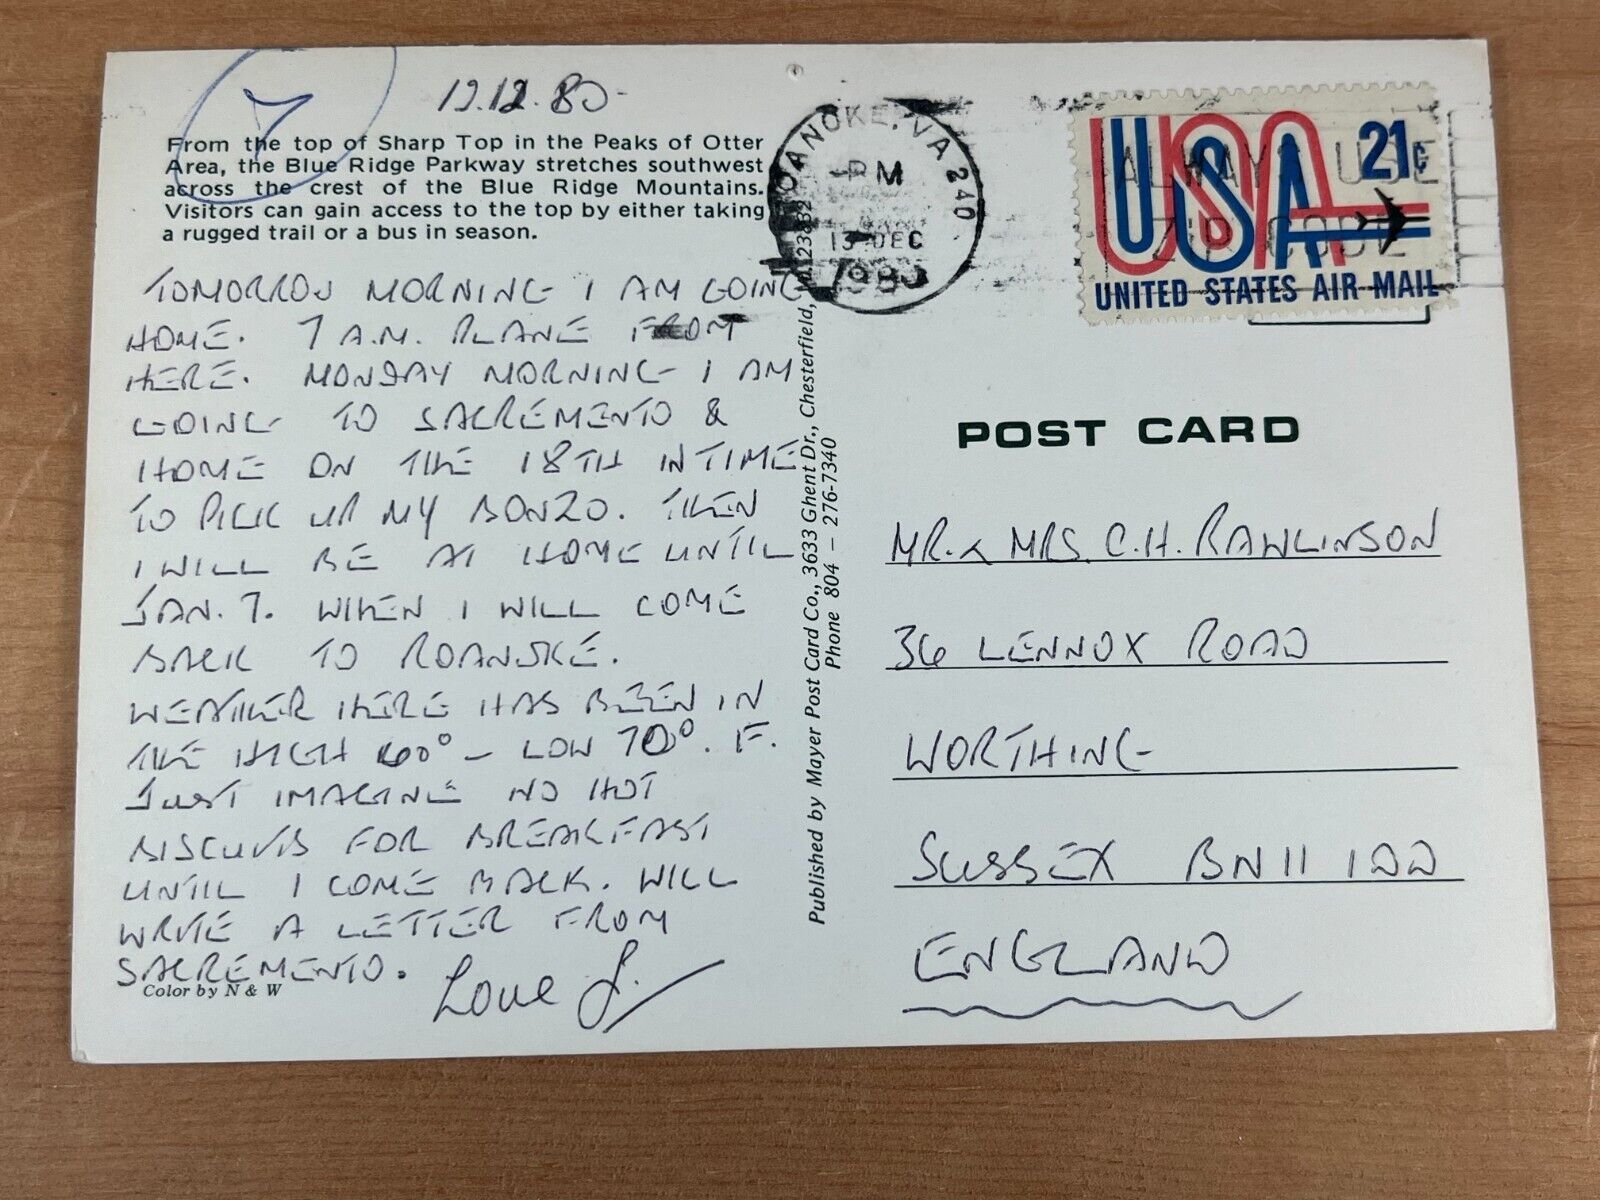 12.12.80
From the top of Sharp Top in the Peaks of Otter
Area, the Blue Ridge Parkway stretches southwest
across the crest of the Blue Ridge Mountains.
Visitors can gain access to the top by either taking
a rugged trail or a bus in season.
TOMORROW MORNING I AM GOING
HOME. 7 A.M. PLANE FROM
HERE. MONDAY MORNING I AM
GOING TO SACREMENTO &
HOME ON THE 18TH IN TIME
TO PICK UP MY BONZO. THEN
I WILL BE AT HOME UNTIL
JAN. 7. WHEN I WILL COME
BACK TO ROANOKE.
WEATHER HERE HAS BEEN IN
THE HIGH 60° - LOW 70°. F.
JUST IMAGINE NO HOT
BISCUITS FOR BREAKFAST
UNTIL I COME BACK. WILL
WRITE A LETTER FROM
SACREMENTO.
Love J.
Color by N & W
Published by Mayer Post Card Co., 3633 Ghent Dr., Chesterfield,
Phone 804 – 276-7340
ROANOKE, VA 240
PM
13 DEC
1980
ALWAYS USE
ZIP CODE
USA 21c
UNITED STATES AIR MAIL
POST CARD
MR. & MRS. C.H. RAWLINSON
36 LENNOX ROAD
WORTHING
SUSSEX BN11 1DD
ENGLAND